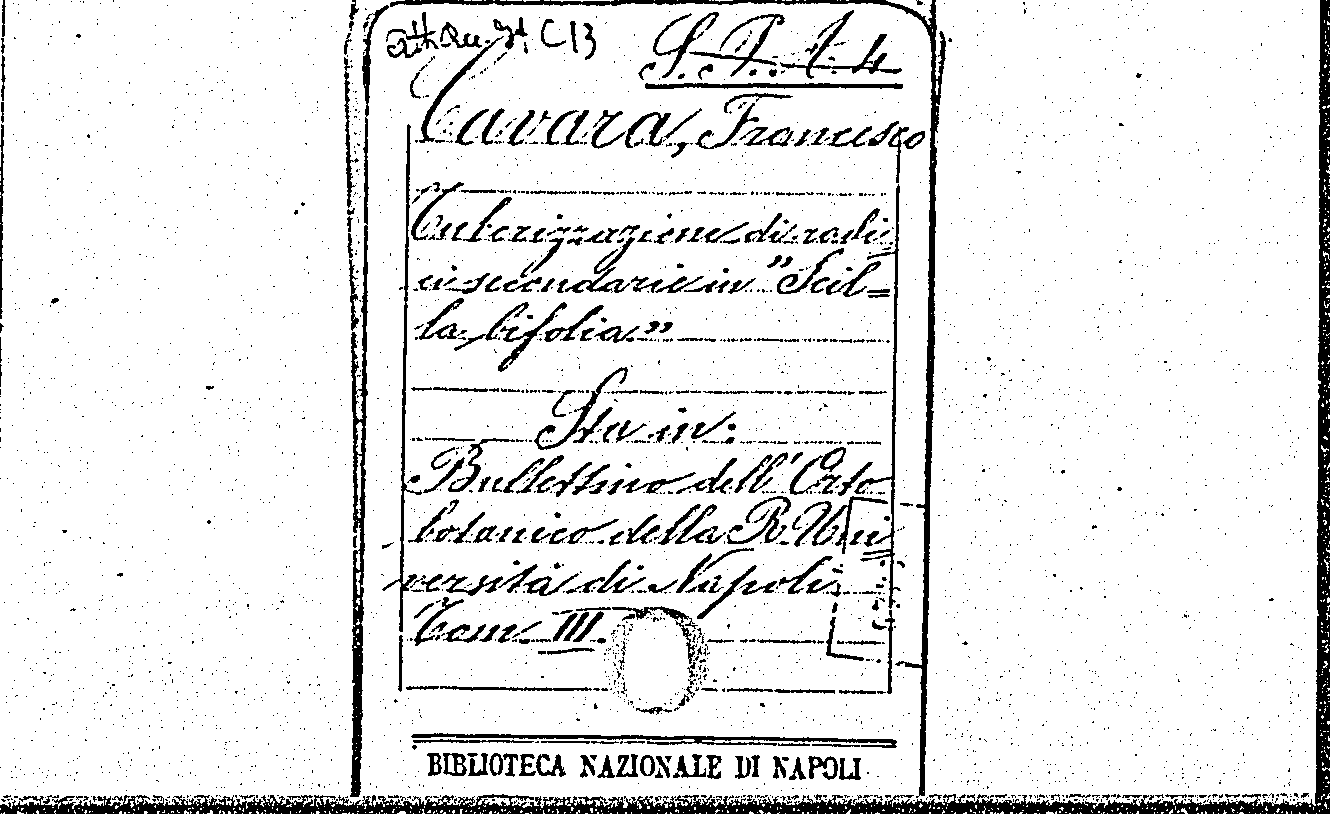 Att. Ru. Id. C 13
S. P. A. 4
Cavara, Francesco
Tuberizzazione di radi=
ci secondarie in "Scil=
la bifolia"
Sta in:
Bullettino dell'Orto
botanico della R. Uni=
versità di Napoli
Tom. III.
BIBLIOTECA NAZIONALE DI NAPOLI